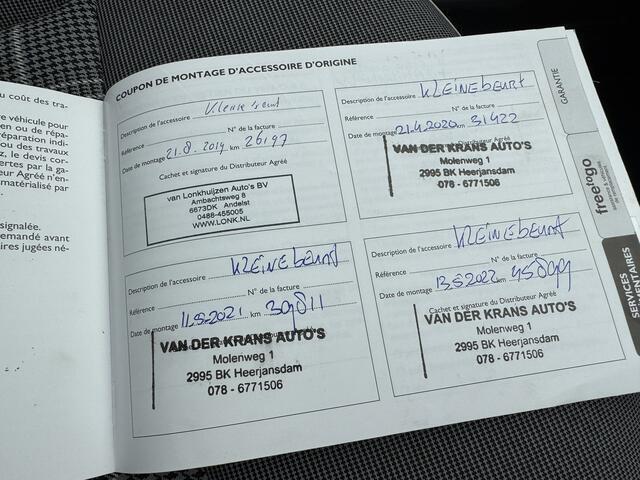 u coût des tra-
e véhicule pour
en ou de répa-
réparation indi-
ou des travaux
z, le devis cor-
ertes par la ga-
eur Agréé n'en-
matérialisé par
signalée.
demandé avant
ires jugées né-
COUPON DE MONTAGE D'ACCESSOIRE D'ORIGINE
Description de l'accessoire Kleine beurt
Référence N° de la facture
Date de montage 21.8.2019 km 26197
Cachet et signature du Distributeur Agréé
van Lonkhuijzen Auto's BV
Ambachtsweg 8
6673DK Andelst
0488-455005
WWW.LONK.NL
Description de l'accessoire KLEINE beurt
Référence N° de la facture
Date de montage 21.4.2020 km 31422
VAN DER KRANS AUTO'S
Molenweg 1
2995 BK Heerjansdam
078 - 6771506
Description de l'accessoire KLEINE beurt
Référence N° de la facture
Date de montage 11.5.2021 km 39811
VAN DER KRANS AUTO'S
Molenweg 1
2995 BK Heerjansdam
078 - 6771506
Description de l'accessoire KLEINE beurt
Référence N° de la facture
Date de montage 13.5.2022 km 45899
Cachet et signature du Distributeur Agréé
VAN DER KRANS AUTO'S
Molenweg 1
2995 BK Heerjansdam
078 - 6771506
GARANTIE
free2go
SERVICES